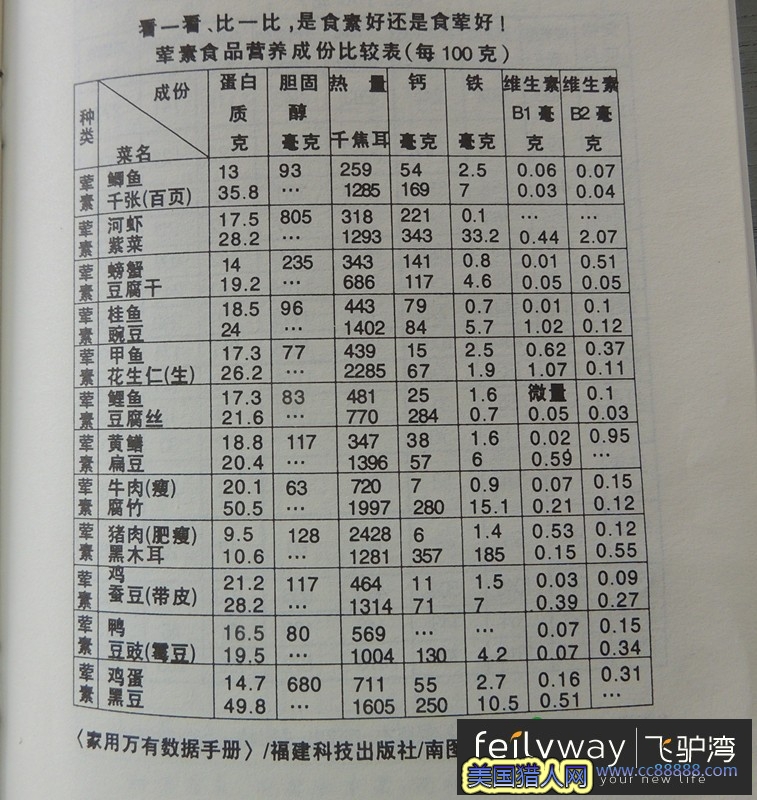 看一看、比一比,是食素好还是食荤好!
荤素食品营养成份比较表(每100克)
种类 成份 菜名 蛋白质 克 胆固醇 毫克 热量 千焦耳 钙 毫克 铁 毫克 维生素B1 毫克 维生素B2 毫克
荤 鲫鱼 13 93 259 54 2.5 0.06 0.07
素 千张(百页) 35.8 … 1285 169 7 0.03 0.04
荤 河虾 17.5 805 318 221 0.1 … …
素 紫菜 28.2 … 1293 343 33.2 0.44 2.07
荤 螃蟹 14 235 343 141 0.8 0.01 0.51
素 豆腐干 19.2 … 686 117 4.6 0.05 0.05
荤 桂鱼 18.5 96 443 79 0.7 0.01 0.1
素 豌豆 24 … 1402 84 5.7 1.02 0.12
荤 甲鱼 17.3 77 439 15 2.5 0.62 0.37
素 花生仁(生) 26.2 … 2285 67 1.9 1.07 0.11
荤 鲤鱼 17.3 83 481 25 1.6 微量 0.1
素 豆腐丝 21.6 … 770 284 0.7 0.05 0.03
荤 黄鳝 18.8 117 347 38 1.6 0.02 0.95
素 扁豆 20.4 … 1396 57 6 0.59 …
荤 牛肉(瘦) 20.1 63 720 7 0.9 0.07 0.15
素 腐竹 50.5 … 1997 280 15.1 0.21 0.12
荤 猪肉(肥瘦) 9.5 128 2428 6 1.4 0.53 0.12
素 黑木耳 10.6 … 1281 357 185 0.15 0.55
荤 鸡 21.2 117 464 11 1.5 0.03 0.09
素 蚕豆(带皮) 28.2 … 1314 71 7 0.39 0.27
荤 鸭 16.5 80 569 … … 0.07 0.15
素 豆豉(霉豆) 19.5 … 1004 130 4.2 0.07 0.34
荤 鸡蛋 14.7 680 711 55 2.7 0.16 0.31
素 黑豆 49.8 … 1605 250 10.5 0.51 …
〈家用万有数据手册〉/福建科技出版社/南图
feilyway 飞驴湾
美国猎人网 www.cc88888.com
your new life